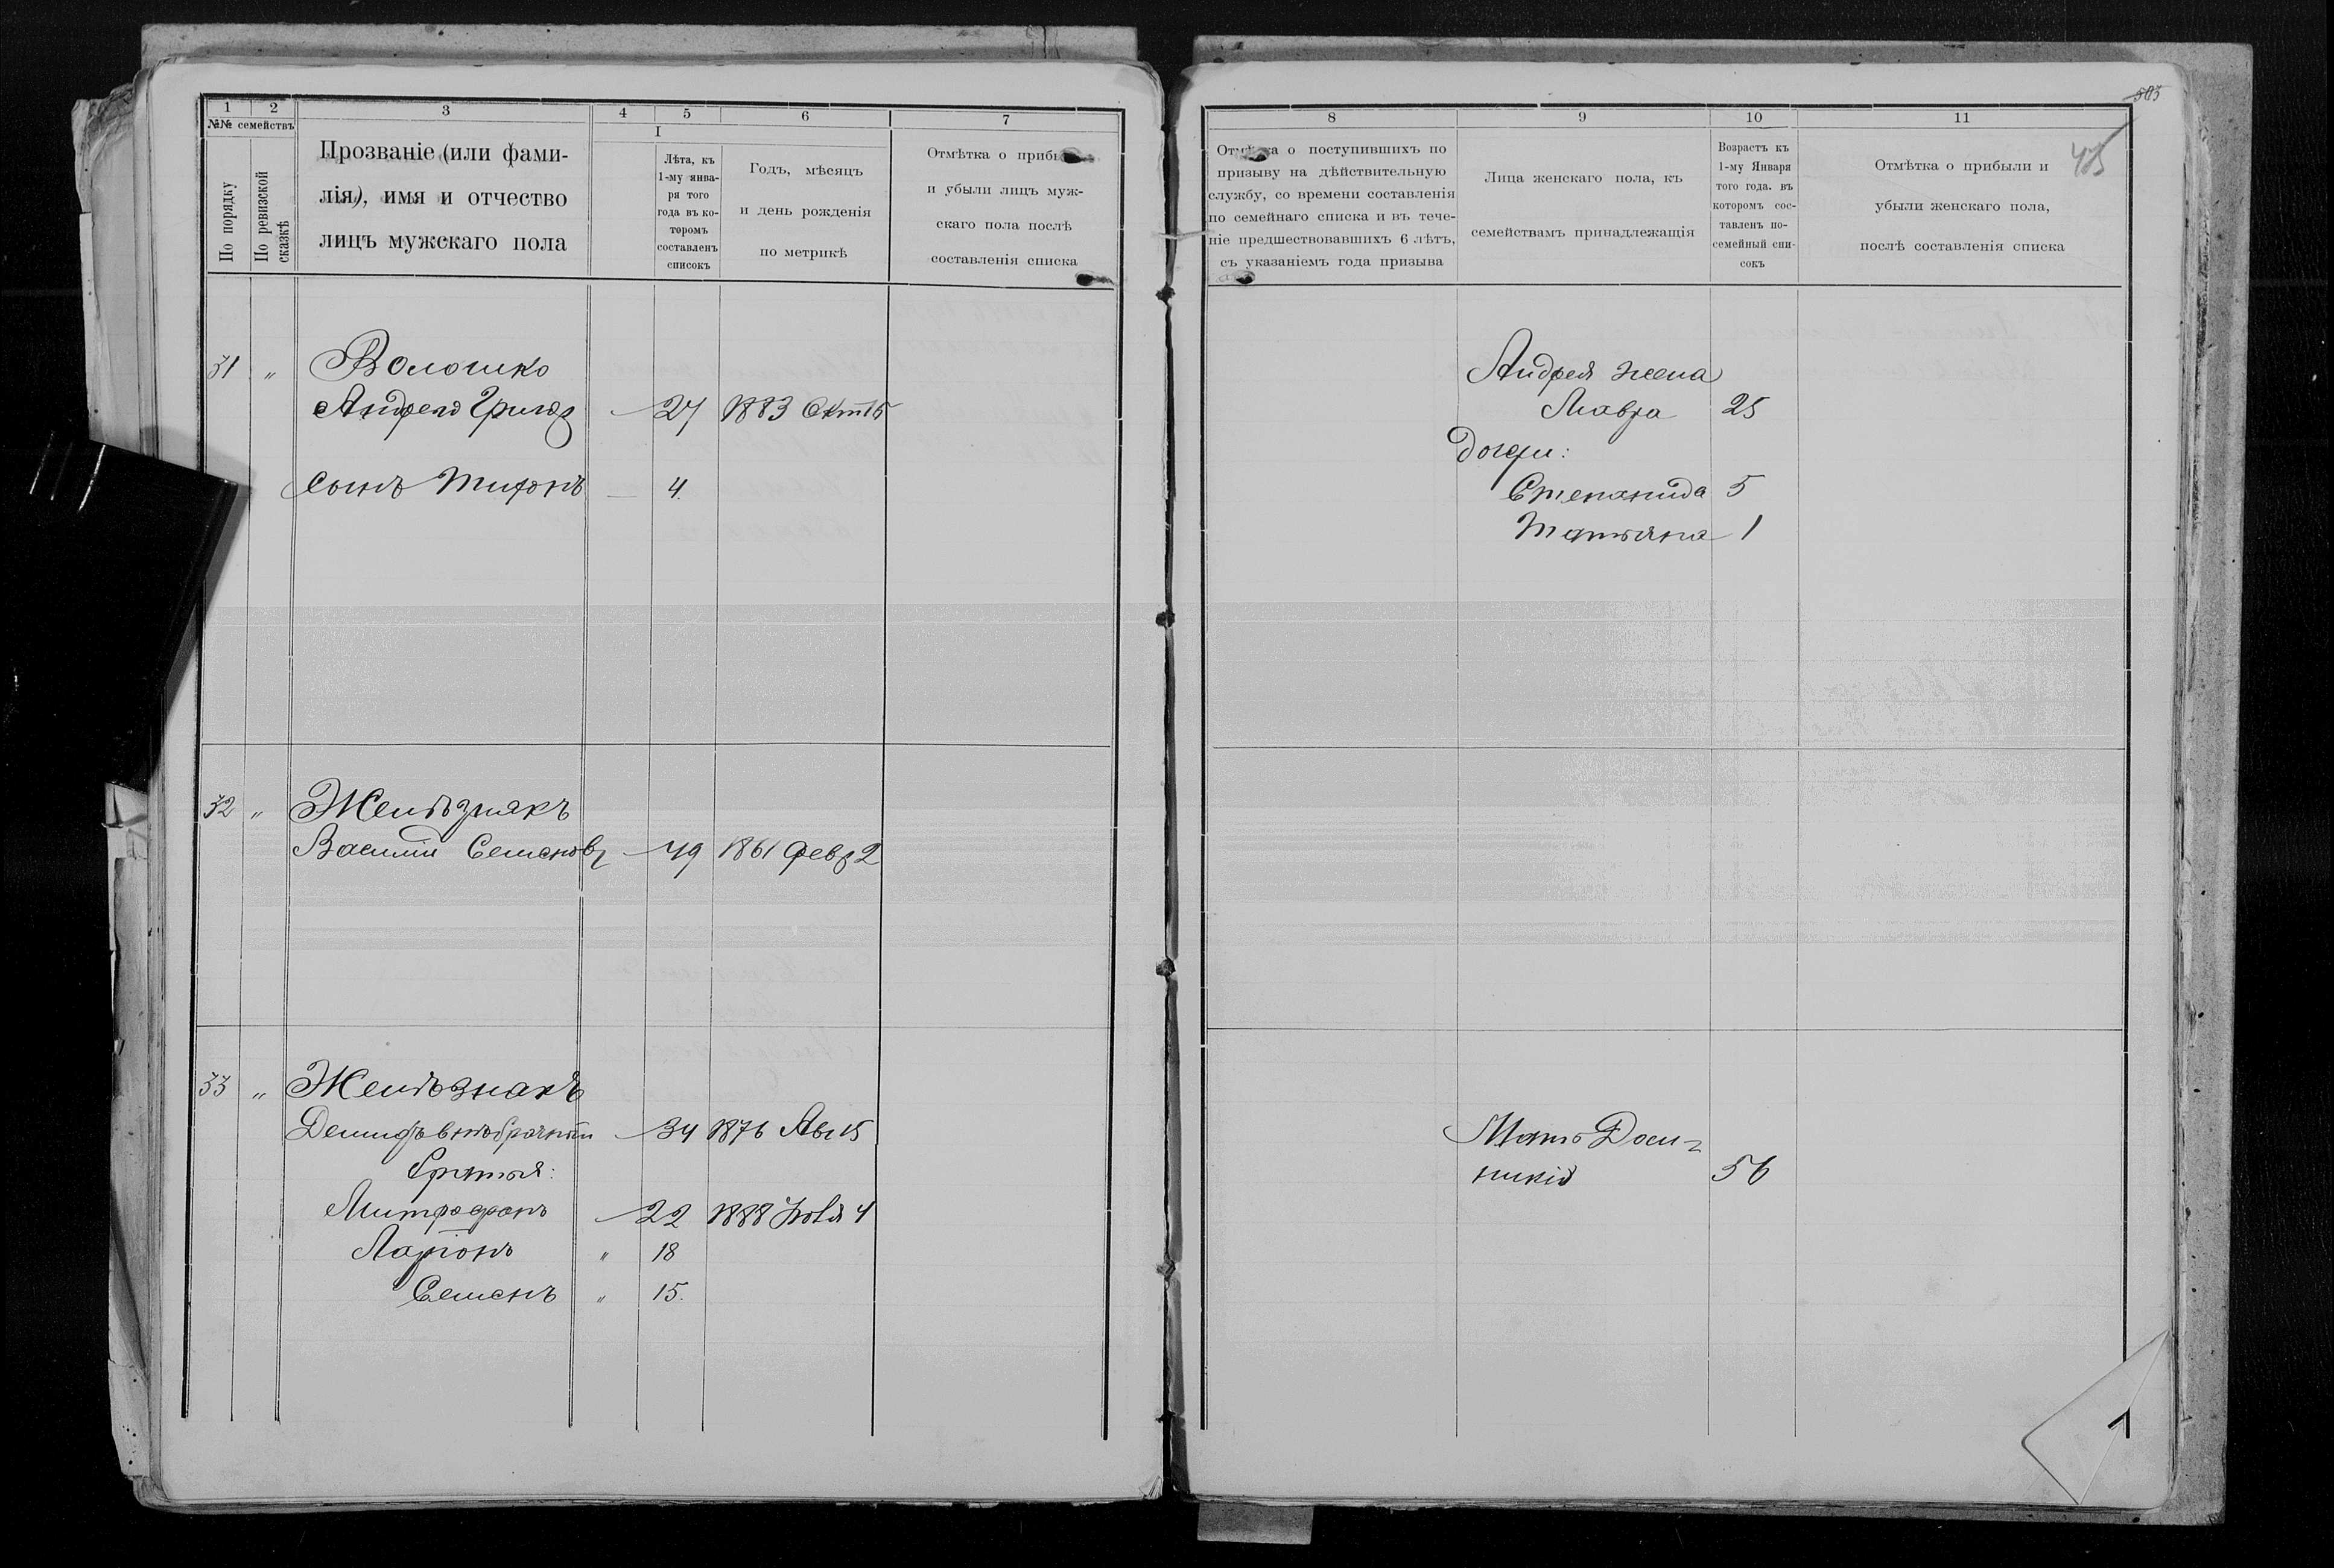 1 2 3 4 5 6 7
№№ семействъ
По порядку
По ревизской сказкѣ
Прозваніе (или фами-
лія), имя и отчество
лицъ мужскаго пола
I
Лѣта, къ
1-му янва-
ря того
года въ ко-
торомъ
составленъ
списокъ
Годъ, мѣсяцъ
и день рожденія
по метрикѣ
Отмѣтка о
и убыли лицъ муж-
скаго пола послѣ
составленія списка
31 " Волошко
Андрей Григор — 27 1883 Окт 15
сынъ Тифонъ — 4.
32 " Желѣзнякъ
Василій Семеновъ — 49 1861 Февр 2
33 " Желѣзнякъ
Демидъ внѣбрачный — 34 1876 Авг 15
братья:
Митрофанъ — 22 1888 Ноя 4
Ларіонъ " 18
Семенъ " 15.
8 9 10 11
о поступившихъ по
призыву на дѣйствительную
службу, со времени составленія
по семейнаго списка и въ тече-
ніе предшествовавшихъ 6 лѣтъ,
съ указаніемъ года призыва
Лица женскаго пола, къ
семействамъ принадлежащія
Возрастъ къ
1-му Января
того года. въ
которомъ сос-
тавленъ по-
семейный спи-
сокъ
Отмѣтка о прибыли и
убыли женскаго пола,
послѣ составленія списка
Андрея жена
Мавра 25
дочери:
Степанида 5
Татьяна 1
Мать Доми-
никія 56